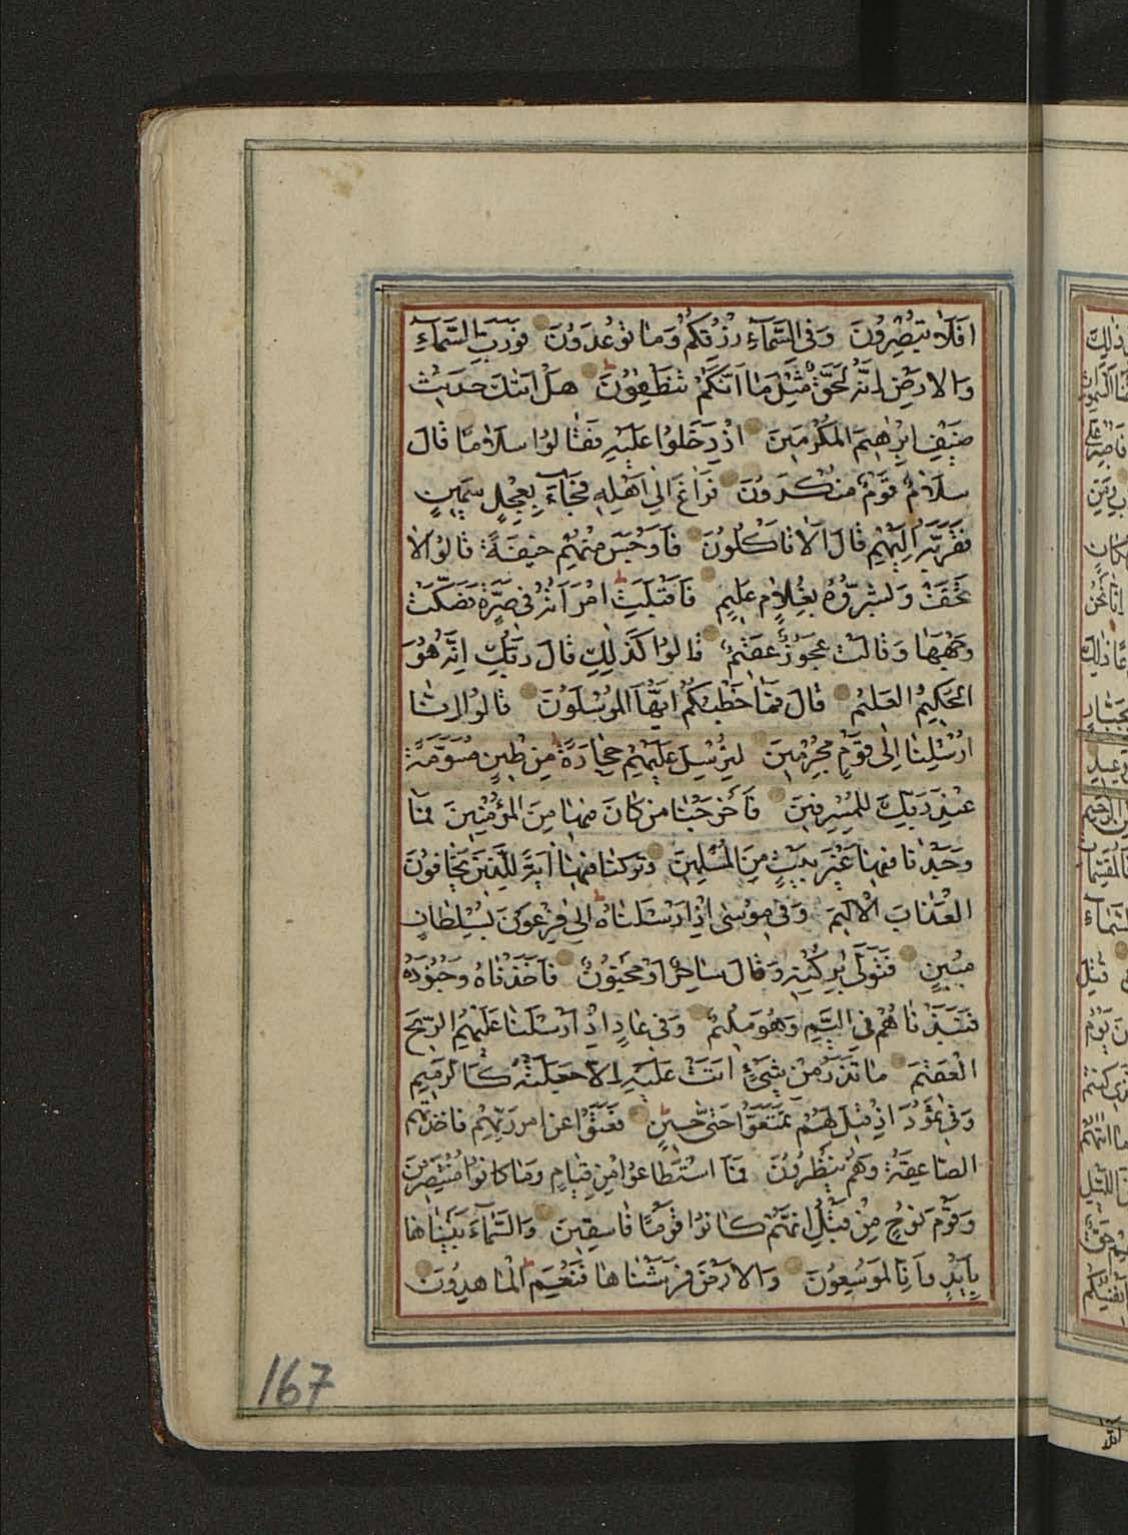 اَفَلَا تُبْصِرُونَ وَفِى السَّمَآءِ رِزْقُكُمْ وَمَا تُوعَدُونَ فَوَرَبِّ السَّمَآءِ
وَالْاَرْضِ اِنَّهُ لَحَقٌّ مِثْلَ مَا اَنَّكُمْ تَنْطِقُونَ هَلْ اَتٰكَ حَدِيثُ
ضَيْفِ اِبْرٰهِيمَ الْمُكْرَمِينَ اِذْ دَخَلُوا عَلَيْهِ فَقَالُوا سَلَامًا قَالَ
سَلَامٌ قَوْمٌ مُنْكَرُونَ فَرَاغَ اِلٰى اَهْلِهِ فَجَآءَ بِعِجْلٍ سَمِينٍ
فَقَرَّبَهُ اِلَيْهِمْ قَالَ اَلَا تَاْكُلُونَ فَاَوْجَسَ مِنْهُمْ خِيفَةً قَالُوا لَا
تَخَفْ وَبَشَّرُوهُ بِغُلَامٍ عَلِيمٍ فَاَقْبَلَتِ امْرَاَتُهُ فِى صَرَّةٍ فَصَكَّتْ
وَجْهَهَا وَقَالَتْ عَجُوزٌ عَقِيمٌ قَالُوا كَذٰلِكِ قَالَ رَبُّكِ اِنَّهُ هُوَ
الْحَكِيمُ الْعَلِيمُ قَالَ فَمَا خَطْبُكُمْ اَيُّهَا الْمُرْسَلُونَ قَالُوا اِنَّا
اُرْسِلْنَا اِلٰى قَوْمٍ مُجْرِمِينَ لِنُرْسِلَ عَلَيْهِمْ حِجَارَةً مِنْ طِينٍ مُسَوَّمَةً
عِنْدَ رَبِّكَ لِلْمُسْرِفِينَ فَاَخْرَجْنَا مَنْ كَانَ فِيهَا مِنَ الْمُؤْمِنِينَ فَمَا
وَجَدْنَا فِيهَا غَيْرَ بَيْتٍ مِنَ الْمُسْلِمِينَ وَتَرَكْنَا فِيهَا اٰيَةً لِلَّذِينَ يَخَافُونَ
الْعَذَابَ الْاَلِيمَ وَفِى مُوسٰى اِذْ اَرْسَلْنَاهُ اِلٰى فِرْعَوْنَ بِسُلْطَانٍ
مُبِينٍ فَتَوَلّٰى بِرُكْنِهِ وَقَالَ سَاحِرٌ اَوْ مَجْنُونٌ فَاَخَذْنَاهُ وَجُنُودَهُ
فَنَبَذْنَاهُمْ فِى الْيَمِّ وَهُوَ مُلِيمٌ وَفِى عَادٍ اِذْ اَرْسَلْنَا عَلَيْهِمُ الرِّيحَ
الْعَقِيمَ مَا تَذَرُ مِنْ شَىْءٍ اَتَتْ عَلَيْهِ اِلَّا جَعَلَتْهُ كَالرَّمِيمِ
وَفِى ثَمُودَ اِذْ قِيلَ لَهُمْ تَمَتَّعُوا حَتّٰى حِينٍ فَعَتَوْا عَنْ اَمْرِ رَبِّهِمْ فَاَخَذَتْهُمُ
الصَّاعِقَةُ وَهُمْ يَنْظُرُونَ فَمَا اسْتَطَاعُوا مِنْ قِيَامٍ وَمَا كَانُوا مُنْتَصِرِينَ
وَقَوْمَ نُوحٍ مِنْ قَبْلُ اِنَّهُمْ كَانُوا قَوْمًا فَاسِقِينَ وَالسَّمَآءَ بَنَيْنَاهَا
بِاَيْدٍ وَاِنَّا لَمُوسِعُونَ وَالْاَرْضَ فَرَشْنَاهَا فَنِعْمَ الْمَاهِدُونَ
167